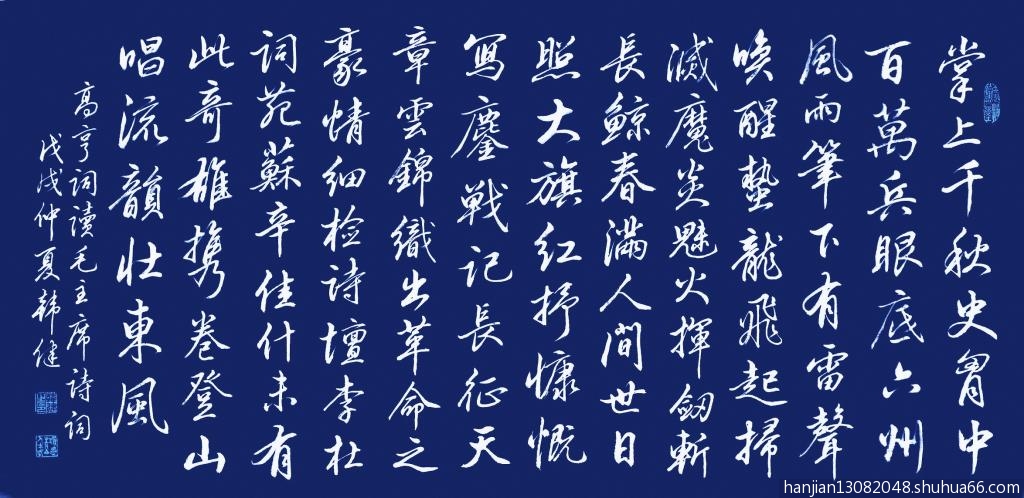 掌上千秋史胃中
百萬兵眼底六州
風雨筆下有雷聲
喚醒蟄龍飛起掃
滅魔炎魅火揮劒斬
長鯨春滿人間世日
照大旗紅抒慷慨
寫鏖戰记長征天
章雲錦織出革命之
豪情细检詩壇李杜
詞苑蘇辛佳什未有
此奇雄攜卷登山
唱流韻壯東風
高亨詞讀毛主席詩詞
戊戌仲夏韩健
hanjian13082048.shuhua66.com